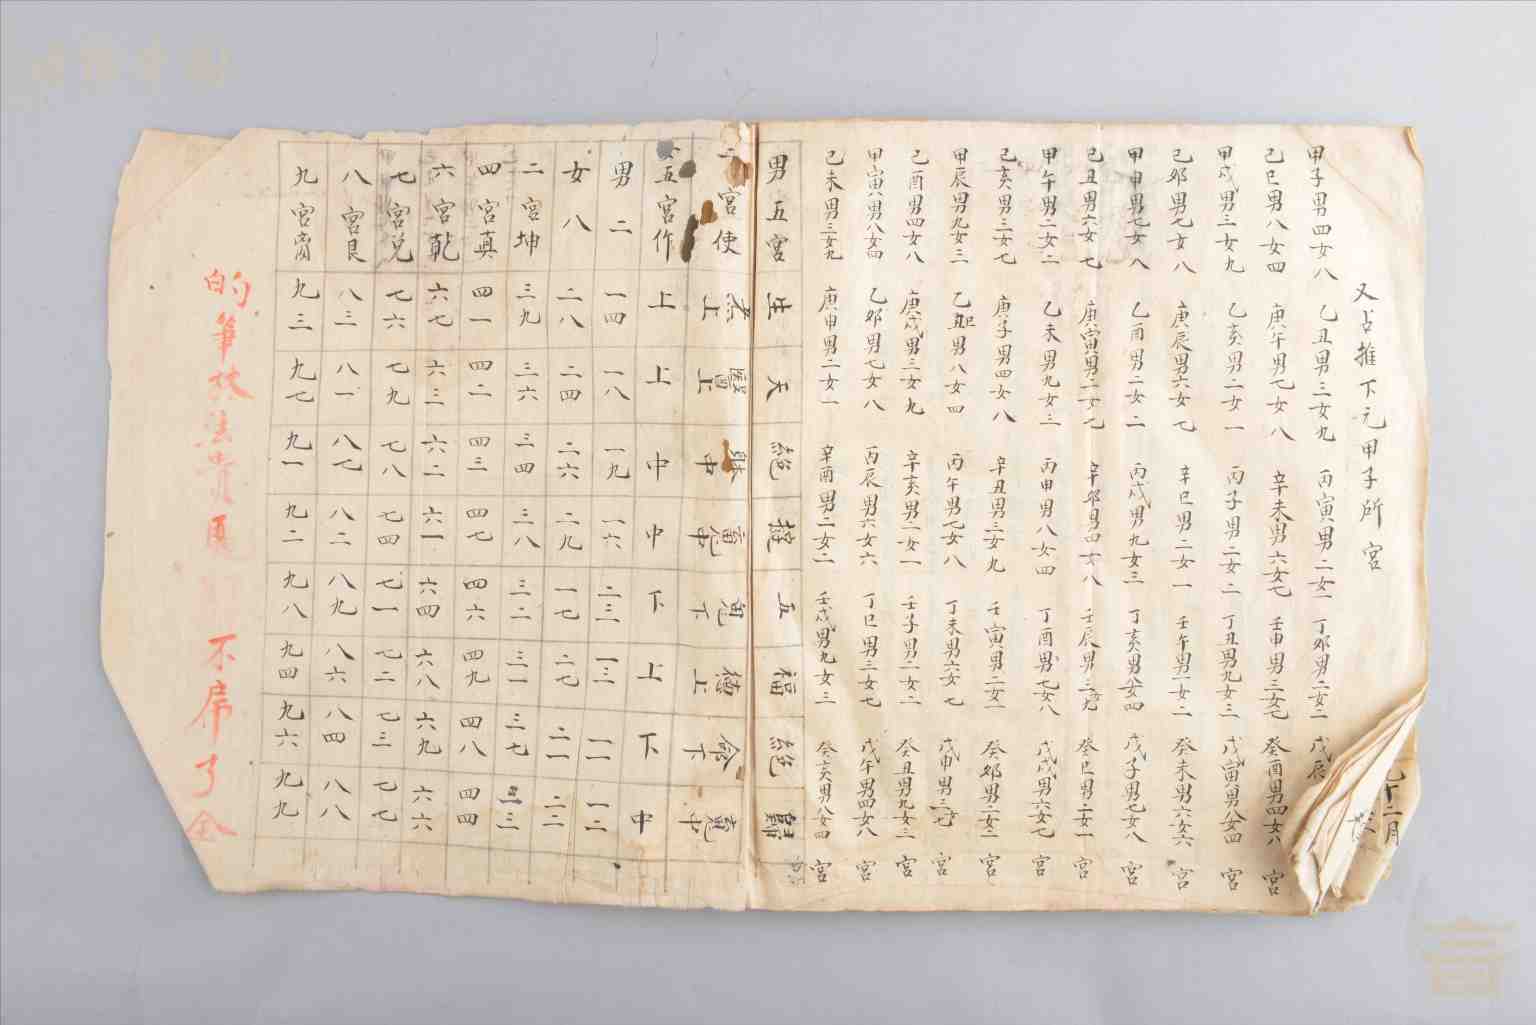 又占推下元甲子所宮
甲子男四女八 乙丑男三女九 丙寅男二女一 丁卯男二女二 戊辰
己巳男八女四 庚午男七女八 辛未男六女七 壬申男三女七 癸酉男四女八 宮
甲戌男三女九 乙亥男二女一 丙子男二女二 丁丑男九女三 戊寅男八女四 宮
己卯男七女八 庚辰男六女七 辛巳男二女一 壬午男一女二 癸未男六女六 宮
甲申男七女八 乙酉男二女二 丙戌男九女三 丁亥男八女四 戊子男七女八 宮
己丑男六女七 庚寅男二女七 辛卯男四女八 壬辰男三女九 癸巳男二女一 宮
甲午男一女二 乙未男九女三 丙申男八女四 丁酉男七女八 戊戌男六女七 宮
己亥男三女七 庚子男四女八 辛丑男三女九 壬寅男二女一 癸卯男二女二 宮
甲辰男九女三 乙巳男八女四 丙午男七女八 丁未男六女七 戊申男三女七 宮
己酉男四女八 庚戌男三女九 辛亥男二女一 壬子男二女二 癸丑男九女三 宮
甲寅男八女四 乙卯男七女八 丙辰男六女六 丁巳男三女七 戊午男四女八 宮
己未男三女九 庚申男二女一 辛酉男二女二 壬戌男九女三 癸亥男八女四 宮
十二月
男五宮 生 天 絕 遊 五 福 絕 歸
二宮使 上 醫上 中 中 鬼下 德上 命下 中
女五宮作 上 上 中 中 下 上 下 中
男二 一四 一八 一九 一六 二三 一三 一一 一二
女八 二八 二四 二六 二九 一七 二七 二一 二二
二宮坤 三九 三六 三四 三八 三二 三一 三七 三三
四宮真 四一 四二 四三 四七 四六 四九 四八 四四
六宮乾 六七 六三 六二 六一 六四 六八 六九 六六
七宮兌 七六 七九 七八 七四 七一 七二 七三 七七
八宮艮 八三 八一 八七 八二 八九 八六 八四 八八
九宮 九三 九七 九一 九二 九八 九四 九六 九九
的筆 不 了